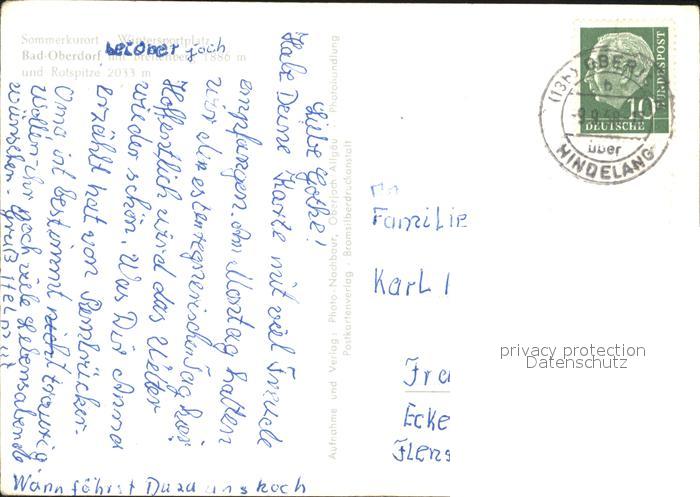 Sommerkurort Wintersportplatz
Bad-Oberdorf mit Breitenberg 1886 m
und Rotspitze 2033 m
joch
Liebe Gothe!
Habe Deine Karte mit viel Freude
empfangen. Am Montag hatten
wir den ersten regnerischen Tag hier
Hoffentlich wird das Wetter
wieder schön. Was Dir Anna
erzählt hat von
Oma ist bestimmt nicht traurig
Wollen ihr noch viele Lebensabende
wünschen. Gruß Helmut
Wann fährst Du zu uns hoch
Aufnahme und Verlag: Photo-Nachbaur, Oberjoch Allgäu · Photohandlung
Postkartenverlag · Bromsilberdruckanstalt
DEUTSCHE
BUNDESPOST
10
(13b) OBERJ
b
über
HINDELANG
An
Familie
Karl
Fra
Ecke
Flens
privacy protection
Datenschutz